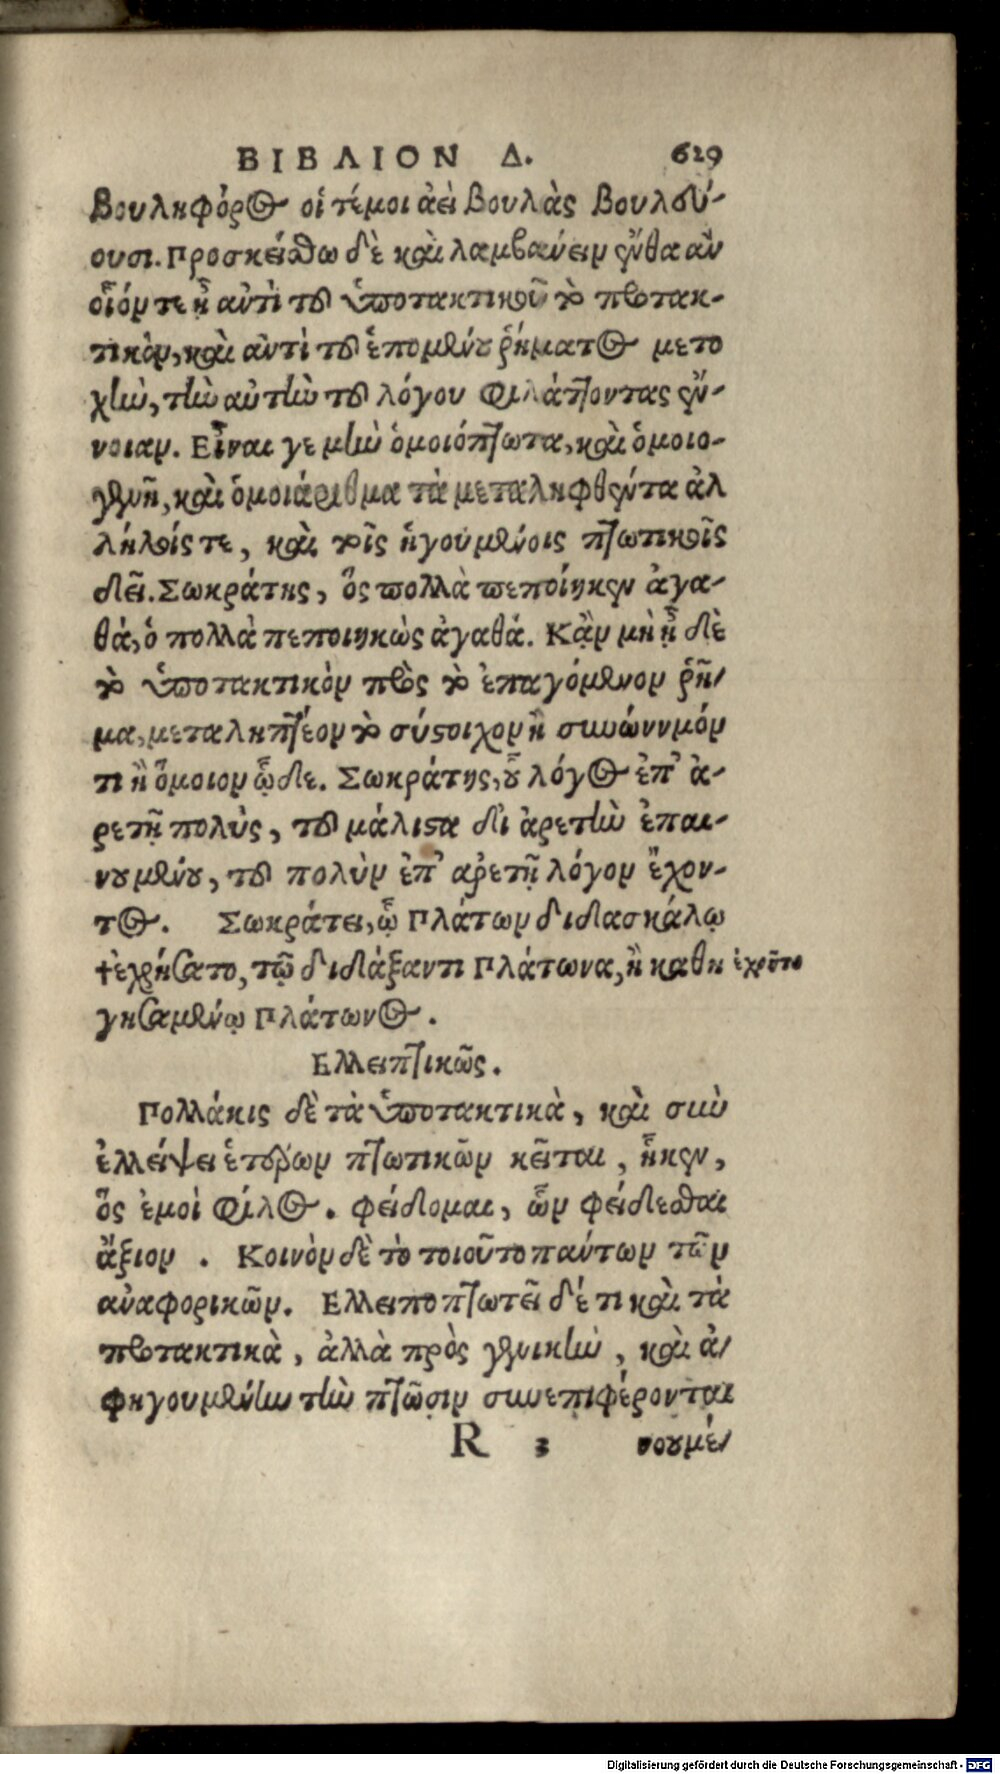 ΒΙΒΛΙΟΝ Δ. 629
βουληφόρος οἵ τέ μοι ἀεὶ βουλὰς βουλεύ-
ουσι. Προσκείσθω δὲ καὶ λαμβάνειν ἔνθα ἂν
οἷόν τε ᾖ ἀντὶ τοῦ ὑποτακτικοῦ τὸ προτακ-
τικὸν, καὶ ἀντὶ τοῦ ἑπομένου ῥήματος μετο
χὴν, τὴν αὐτὴν τοῦ λόγου φυλάττοντας ἔν-
νοιαν. Εἶναί γε μὴν ὁμοιόπτωτα, καὶ ὁμοιο-
γενῆ, καὶ ὁμοιάριθμα τὰ μεταληφθέντα ἀλ
λήλοις τε, καὶ τοῖς ἡγουμένοις πτωτικοῖς
δεῖ. Σωκράτης, ὃς πολλὰ πεποίηκεν ἀγα-
θά, ὁ πολλὰ πεποιηκὼς ἀγαθά. Κἂν μὴ ᾖ δὲ
τὸ ὑποτακτικὸν πρὸς τὸ ἐπαγόμενον ῥῆ-
μα, μεταληπτέον τὸ σύστοιχον ἢ συνώνυμόν
τι ἢ ὅμοιον ὧδε. Σωκράτης, οὗ λόγος ἐπ' ἀ-
ρετῇ πολὺς, τοῦ μάλιστα δι ἀρετὴν ἐπαι-
νουμένου, τοῦ πολὺν ἐπ' ἀρετῇ λόγον ἔχον-
τος. Σωκράτει, ᾧ Πλάτων διδασκάλῳ
†ἐχρήσατο, τῷ διδάξαντι Πλάτωνα, ἢ καθη ἐχρῆτο
γησαμένῳ Πλάτωνος.
Ελλειπτικῶς.
Πολλάκις δὲ τὰ ὑποτακτικὰ, καὶ σὺν
ἐλλείψει ἑτέρων πτωτικῶν κεῖται, ἧκεν,
ὃς ἐμοὶ φίλος. φείδομαι, ὧν φείδεσθαι
ἄξιον. Κοινὸν δὲ τὸ τοιοῦτο πάντων τῶν
ἀναφορικῶν. Ελλειποπτωτεῖ δέ τι καὶ τὰ
προτακτικὰ, ἀλλὰ πρὸς γενικὴν, καὶ ἀ-
φηγουμένην τὴν πτῶσιν συνεπιφέρονται
R 3 νουμέ-
Digitalisierung gefördert durch die Deutsche Forschungsgemeinschaft - DFG